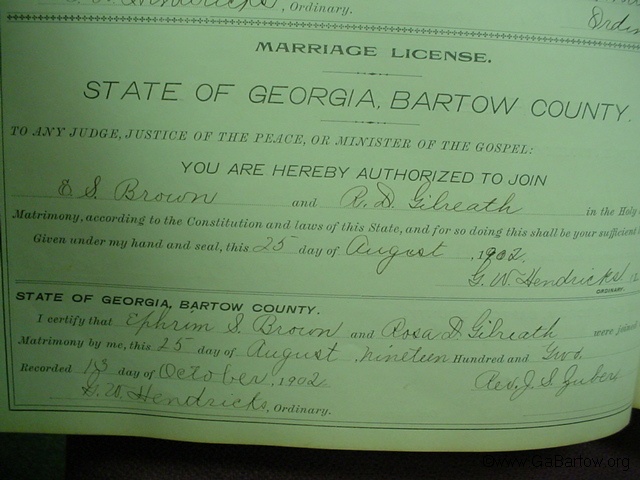 Hendricks, Ordinary.
MARRIAGE LICENSE.
STATE OF GEORGIA, BARTOW COUNTY.
TO ANY JUDGE, JUSTICE OF THE PEACE, OR MINISTER OF THE GOSPEL:
YOU ARE HEREBY AUTHORIZED TO JOIN
E S. Brown and R. D. Gilreath in the Holy
Matrimony, according to the Constitution and laws of this State, and for so doing this shall be your sufficient
Given under my hand and seal, this 25 day of August, 1902.
G. W. Hendricks
ORDINARY.
STATE OF GEORGIA, BARTOW COUNTY.
I certify that Ephrim S. Brown and Rosa D Gilreath were joined
Matrimony by me, this 25 day of August, Nineteen Hundred and Two.
Recorded 13 day of October, 1902 Rev. J. S.
G. W. Hendricks, Ordinary.
©www.GaBartow.org